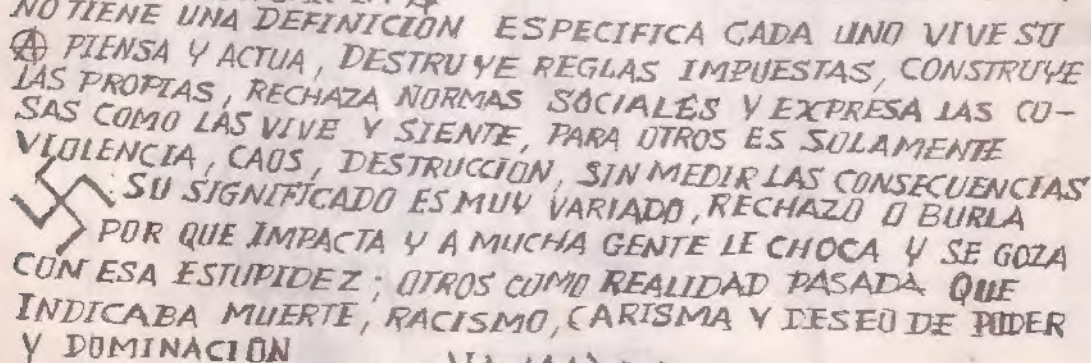 NO TIENE UNA DEFINICIÓN ESPECIFICA CADA UNO VIVE SU
Ⓐ PIENSA Y ACTUA, DESTRUYE REGLAS IMPUESTAS, CONSTRUYE
LAS PROPIAS, RECHAZA NORMAS SOCIALES Y EXPRESA LAS CO-
SAS COMO LAS VIVE Y SIENTE, PARA OTROS ES SOLAMENTE
VIOLENCIA, CAOS, DESTRUCCION, SIN MEDIR LAS CONSECUENCIAS
卐: SU SIGNIFICADO ES MUY VARIADO, RECHAZO O BURLA
POR QUE IMPACTA Y A MUCHA GENTE LE CHOCA Y SE GOZA
CON ESA ESTUPIDEZ; OTROS COMO REALIDAD PASADA QUE
INDICABA MUERTE, RACISMO, CARISMA Y DESEO DE PODER
Y DOMINACION